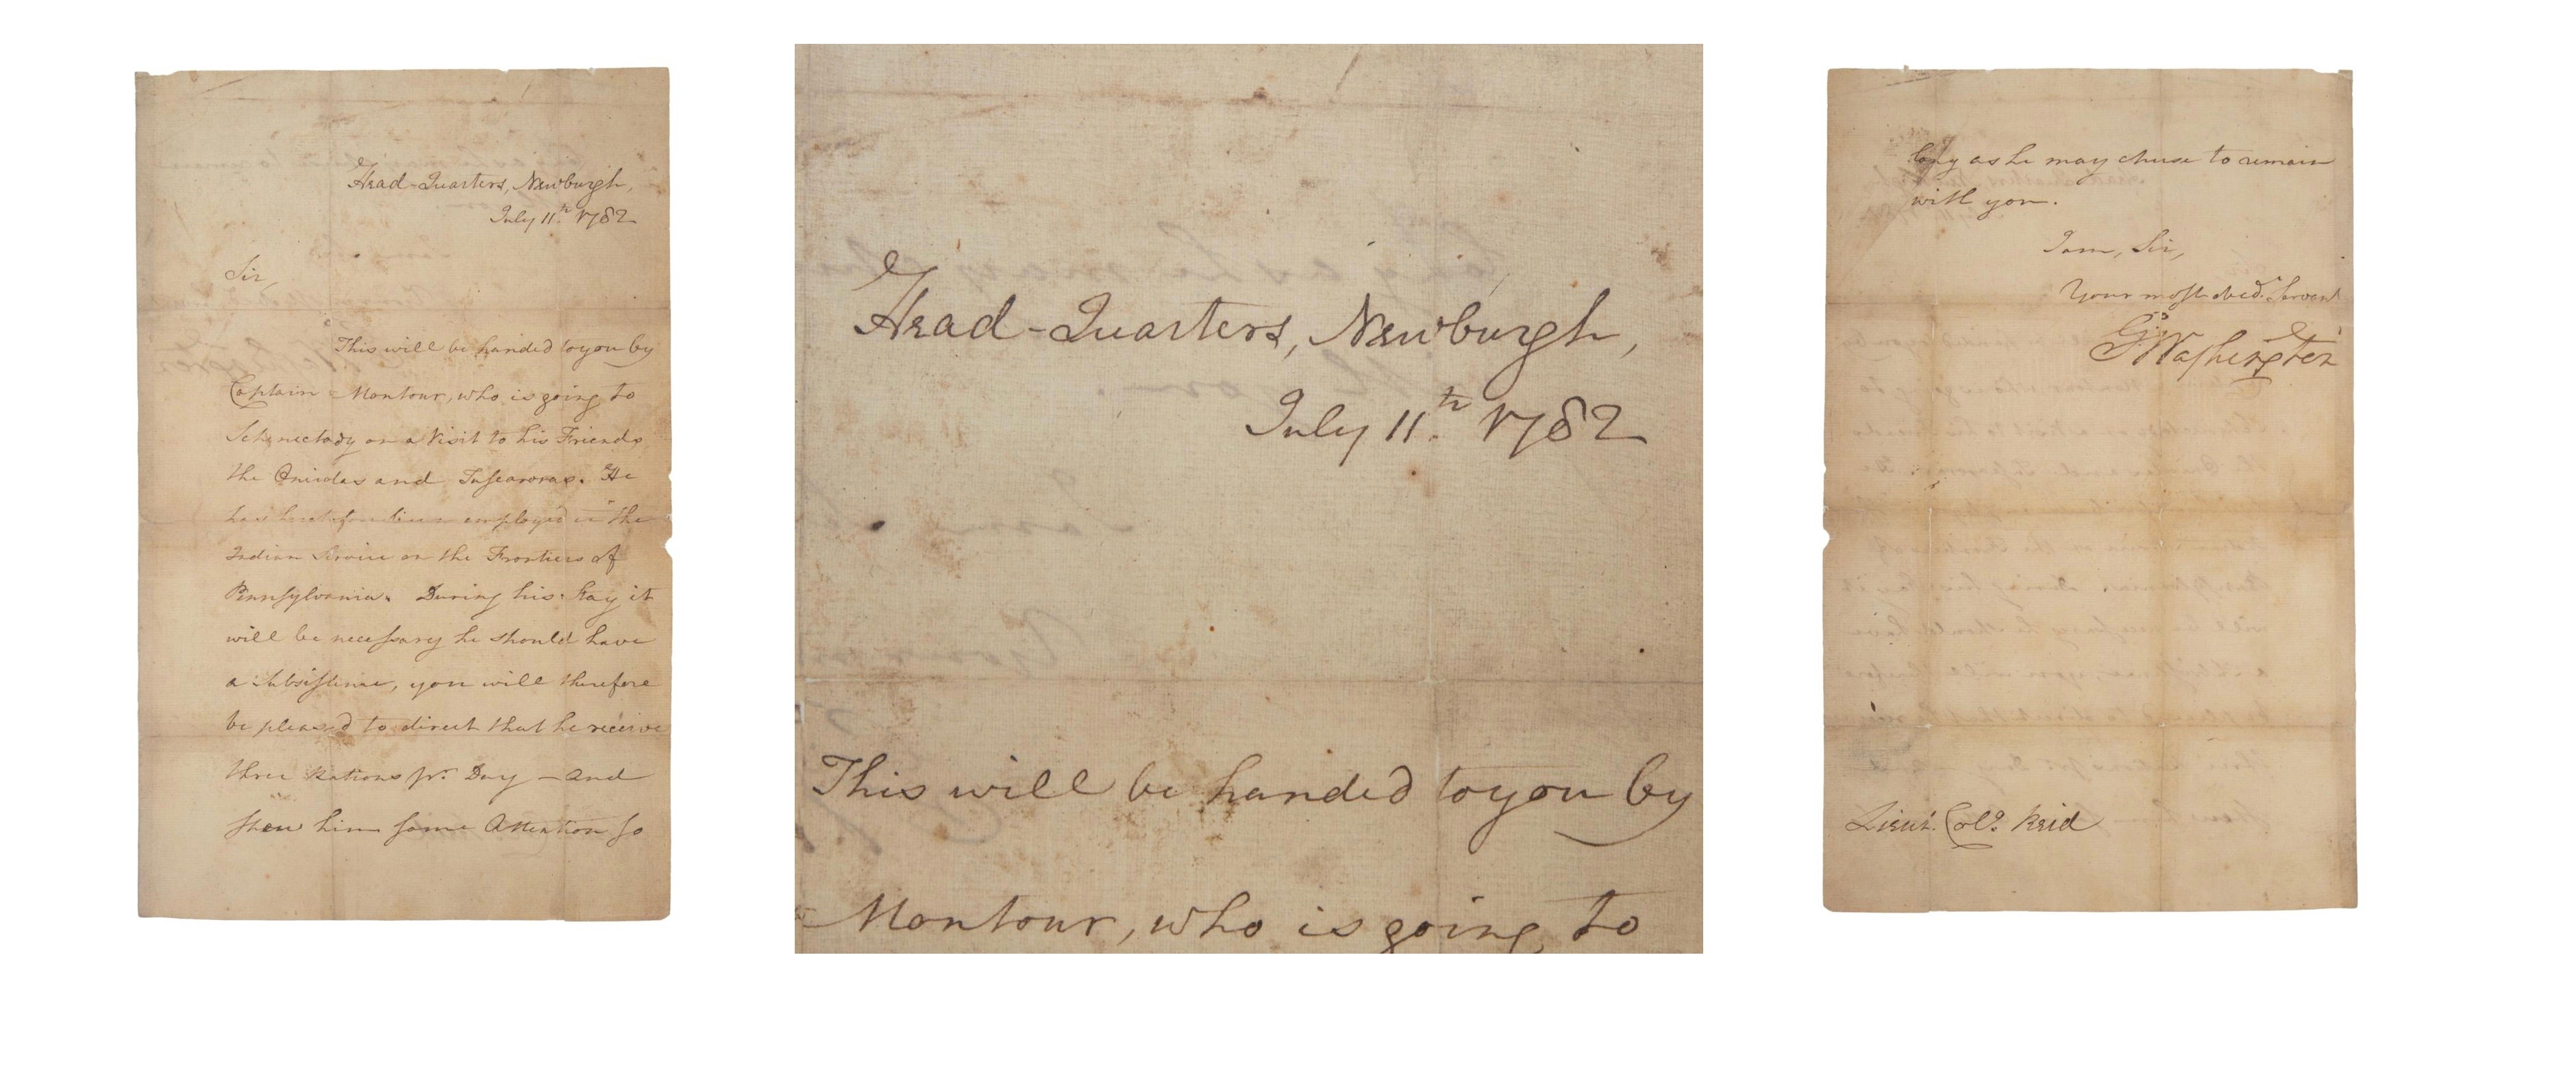 Head-Quarters, Newburgh,
July 11.th 1782
Sir,
This will be handed to you by
Captain Montour, who is going to
Schenectady on a Visit to his Friends
the Oneidas and Tuscaroras. He
has heretofore been employed in the
Indian Service on the Frontiers of
Pennsylvania. During his Stay it
will be necessary he should have
a Subsistence, you will therefore
be pleased to direct that he receive
three Rations pr. Day — and
shew him some Attention so
Head-Quarters, Newburgh,
July 11.th 1782
This will be handed to you by
Montour, who is going to
long as he may chuse to remain
with you.
I am, Sir,
Your most obed. Servant
Go Washington
Lieut. Colo. Reid